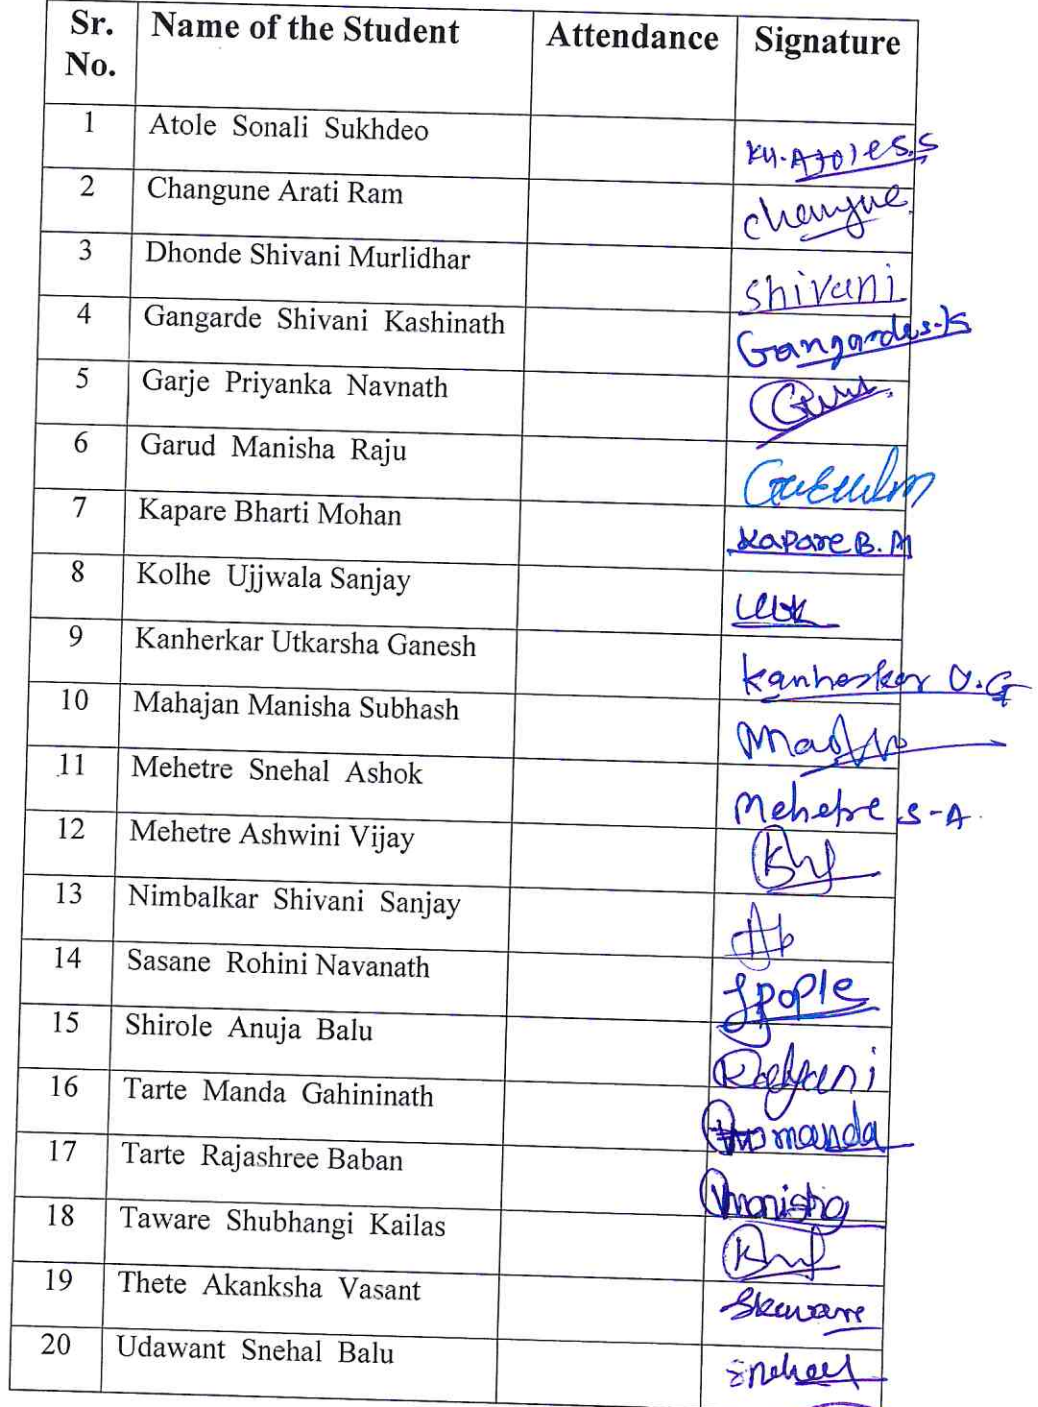 Sr. No. Name of the Student Attendance Signature
1 Atole Sonali Sukhdeo Ku. Atole S.S
2 Changune Arati Ram
3 Dhonde Shivani Murlidhar Shivani
4 Gangarde Shivani Kashinath Gangarde S.K
5 Garje Priyanka Navnath
6 Garud Manisha Raju
7 Kapare Bharti Mohan Kapare B. M
8 Kolhe Ujjwala Sanjay
9 Kanherkar Utkarsha Ganesh Kanherkar U.G
10 Mahajan Manisha Subhash
11 Mehetre Snehal Ashok Mehetre S-A.
12 Mehetre Ashwini Vijay
13 Nimbalkar Shivani Sanjay
14 Sasane Rohini Navanath
15 Shirole Anuja Balu Kalyani
16 Tarte Manda Gahininath manda
17 Tarte Rajashree Baban Manisha
18 Taware Shubhangi Kailas
19 Thete Akanksha Vasant
20 Udawant Snehal Balu Snehal